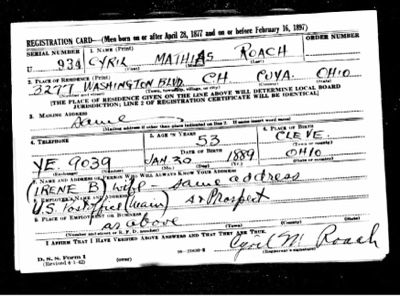 REGISTRATION CARD—(Men born on or after April 28, 1877 and on or before February 16, 1897)
SERIAL NUMBER 1. NAME (Print) ORDER NUMBER
U 934 CYRIL MATHIAS ROACH
(First) (Middle) (Last)
2. PLACE OF RESIDENCE (Print)
3277 WASHINGTON BLVD. CH CUYA. OHIO
(Number and street) (Town, township, village, or city) (County) (State)
[THE PLACE OF RESIDENCE GIVEN ON THE LINE ABOVE WILL DETERMINE LOCAL BOARD
JURISDICTION; LINE 2 OF REGISTRATION CERTIFICATE WILL BE IDENTICAL]
3. MAILING ADDRESS
Same
[Mailing address if other than place indicated on line 2. If same insert word same]
4. TELEPHONE 5. AGE IN YEARS 6. PLACE OF BIRTH
53 CLEVE.
DATE OF BIRTH (Town or county)
YE. 9039 JAN 30 1889 OHIO
(Exchange) (Number) (Mo.) (Day) (Yr.) (State or country)
7. NAME AND ADDRESS OF PERSON WHO WILL ALWAYS KNOW YOUR ADDRESS
(IRENE B) wife - same address
8. EMPLOYER'S NAME AND ADDRESS
U.S. Post office (Main) Prospect
9. PLACE OF EMPLOYMENT OR BUSINESS
as above
(Number and street or R. F. D. number) (Town) (County) (State)
I AFFIRM THAT I HAVE VERIFIED ABOVE ANSWERS AND THAT THEY ARE TRUE.
D. S. S. Form 1
(Revised 4-1-42) Cyril M Roach
(Registrant's signature)